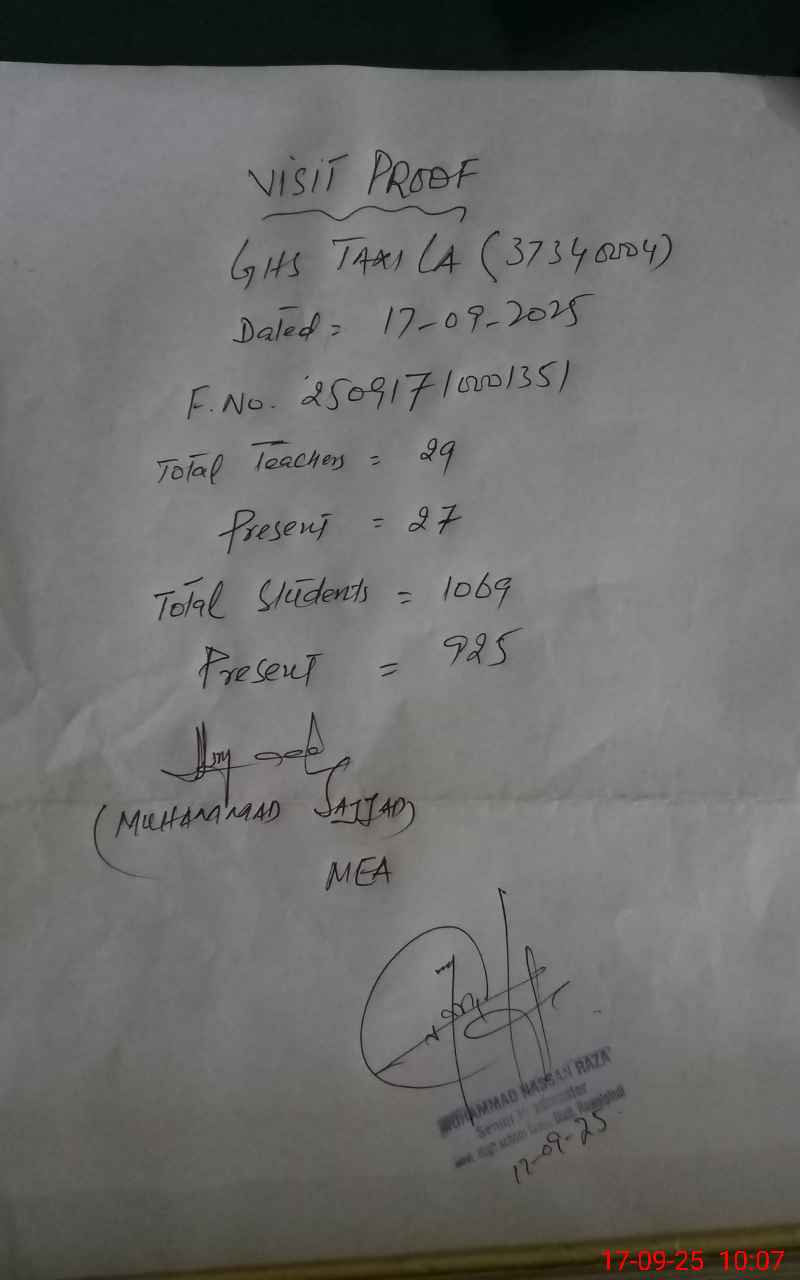 VISIT PROOF
GHS TAXILA (37340004)
Dated = 17-09-2025
F.No. 25091710001351
Total Teachers = 29
Present = 27
Total Students = 1069
Present = 925
(MUHAMMAD SAJJAD)
MEA
MUHAMMAD HASSAN RAZA
Senior
17-09-25
17-09-25 10:07